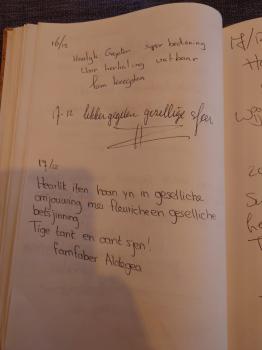 16/12
Heerlijk Gegeten super bediening
Voor herhaling vatbaar
Fam
17-12 lekker gegeten gezellige sfeer
17/12
Hearlik iten haan yn in geselliche
omjouwing mei fleurich en geselliche
betsjinning
Tige tank en oant sjen!
famfaber Aldegea
18/12
H